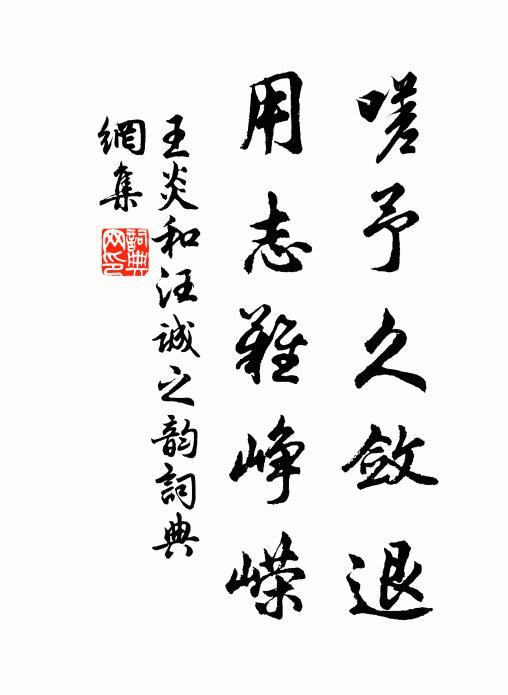 嗟予久斂退
用志難峥嵘
王炎和汪诚之韵詞典
網集
詞典
网印